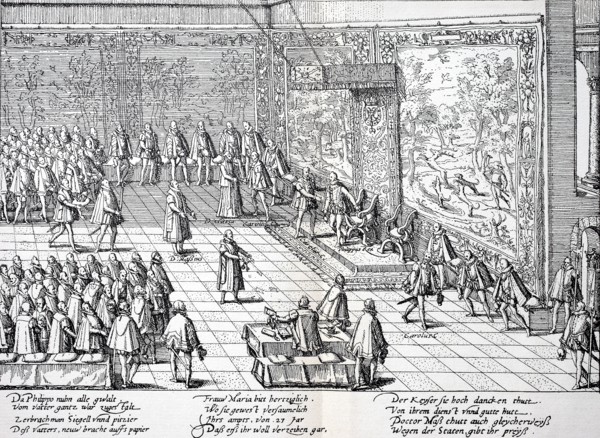 D. Maria
Carolus
Carolus
Da Philippo nuhn alle gwalt
Vom vatter gantz war zugestalt
Zerbrach man Siegell vnnd pitzier
Deß vatters, neuw bracht auffs papier
Frauw Maria biet hertziglich.
Wo sie gewest versaumelich
Ihrs ampts, von 23 Jar
Daß erß ihr woll verzeihen gar.
Der Keyser sie hoch dancken thutt
Von ihrem dienst vnnd gute hutt.
Doctor Maß thutt auch gleycherweyß
Wegen der Staten, gibt ihr preyß